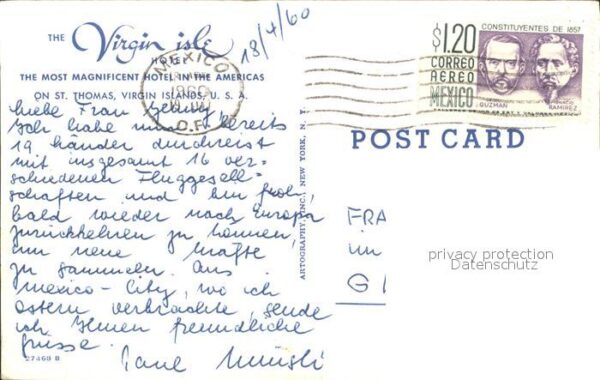 THE
Virgin isle
HOTEL
THE MOST MAGNIFICENT HOTEL IN THE AMERICAS
ON ST. THOMAS, VIRGIN ISLANDS, U. S. A.
18/4/60
MEXICO
1960
D.F.
CONSTITUYENTES DE 1857
$1.20
CORREO
AEREO
MEXICO
GUZMAN
IGNACIO
RAMIREZ
POST CARD
Liebe Frau
Ich habe nun bereits
19 Länder durchreist
mit insgesamt 16 ver-
schiedenen Fluggesell-
schaften und bin froh,
bald wieder nach Europa
zurückkehren zu können,
um neue Kräfte
zu sammeln. Aus
Mexico-City, wo ich
Ostern verbrachte, sende
ich Ihnen freundliche
Grüsse.
ARTOGRAPHY, INC., NEW YORK, N. Y.
FRA
im
G
privacy protection
Datenschutz
27468 B